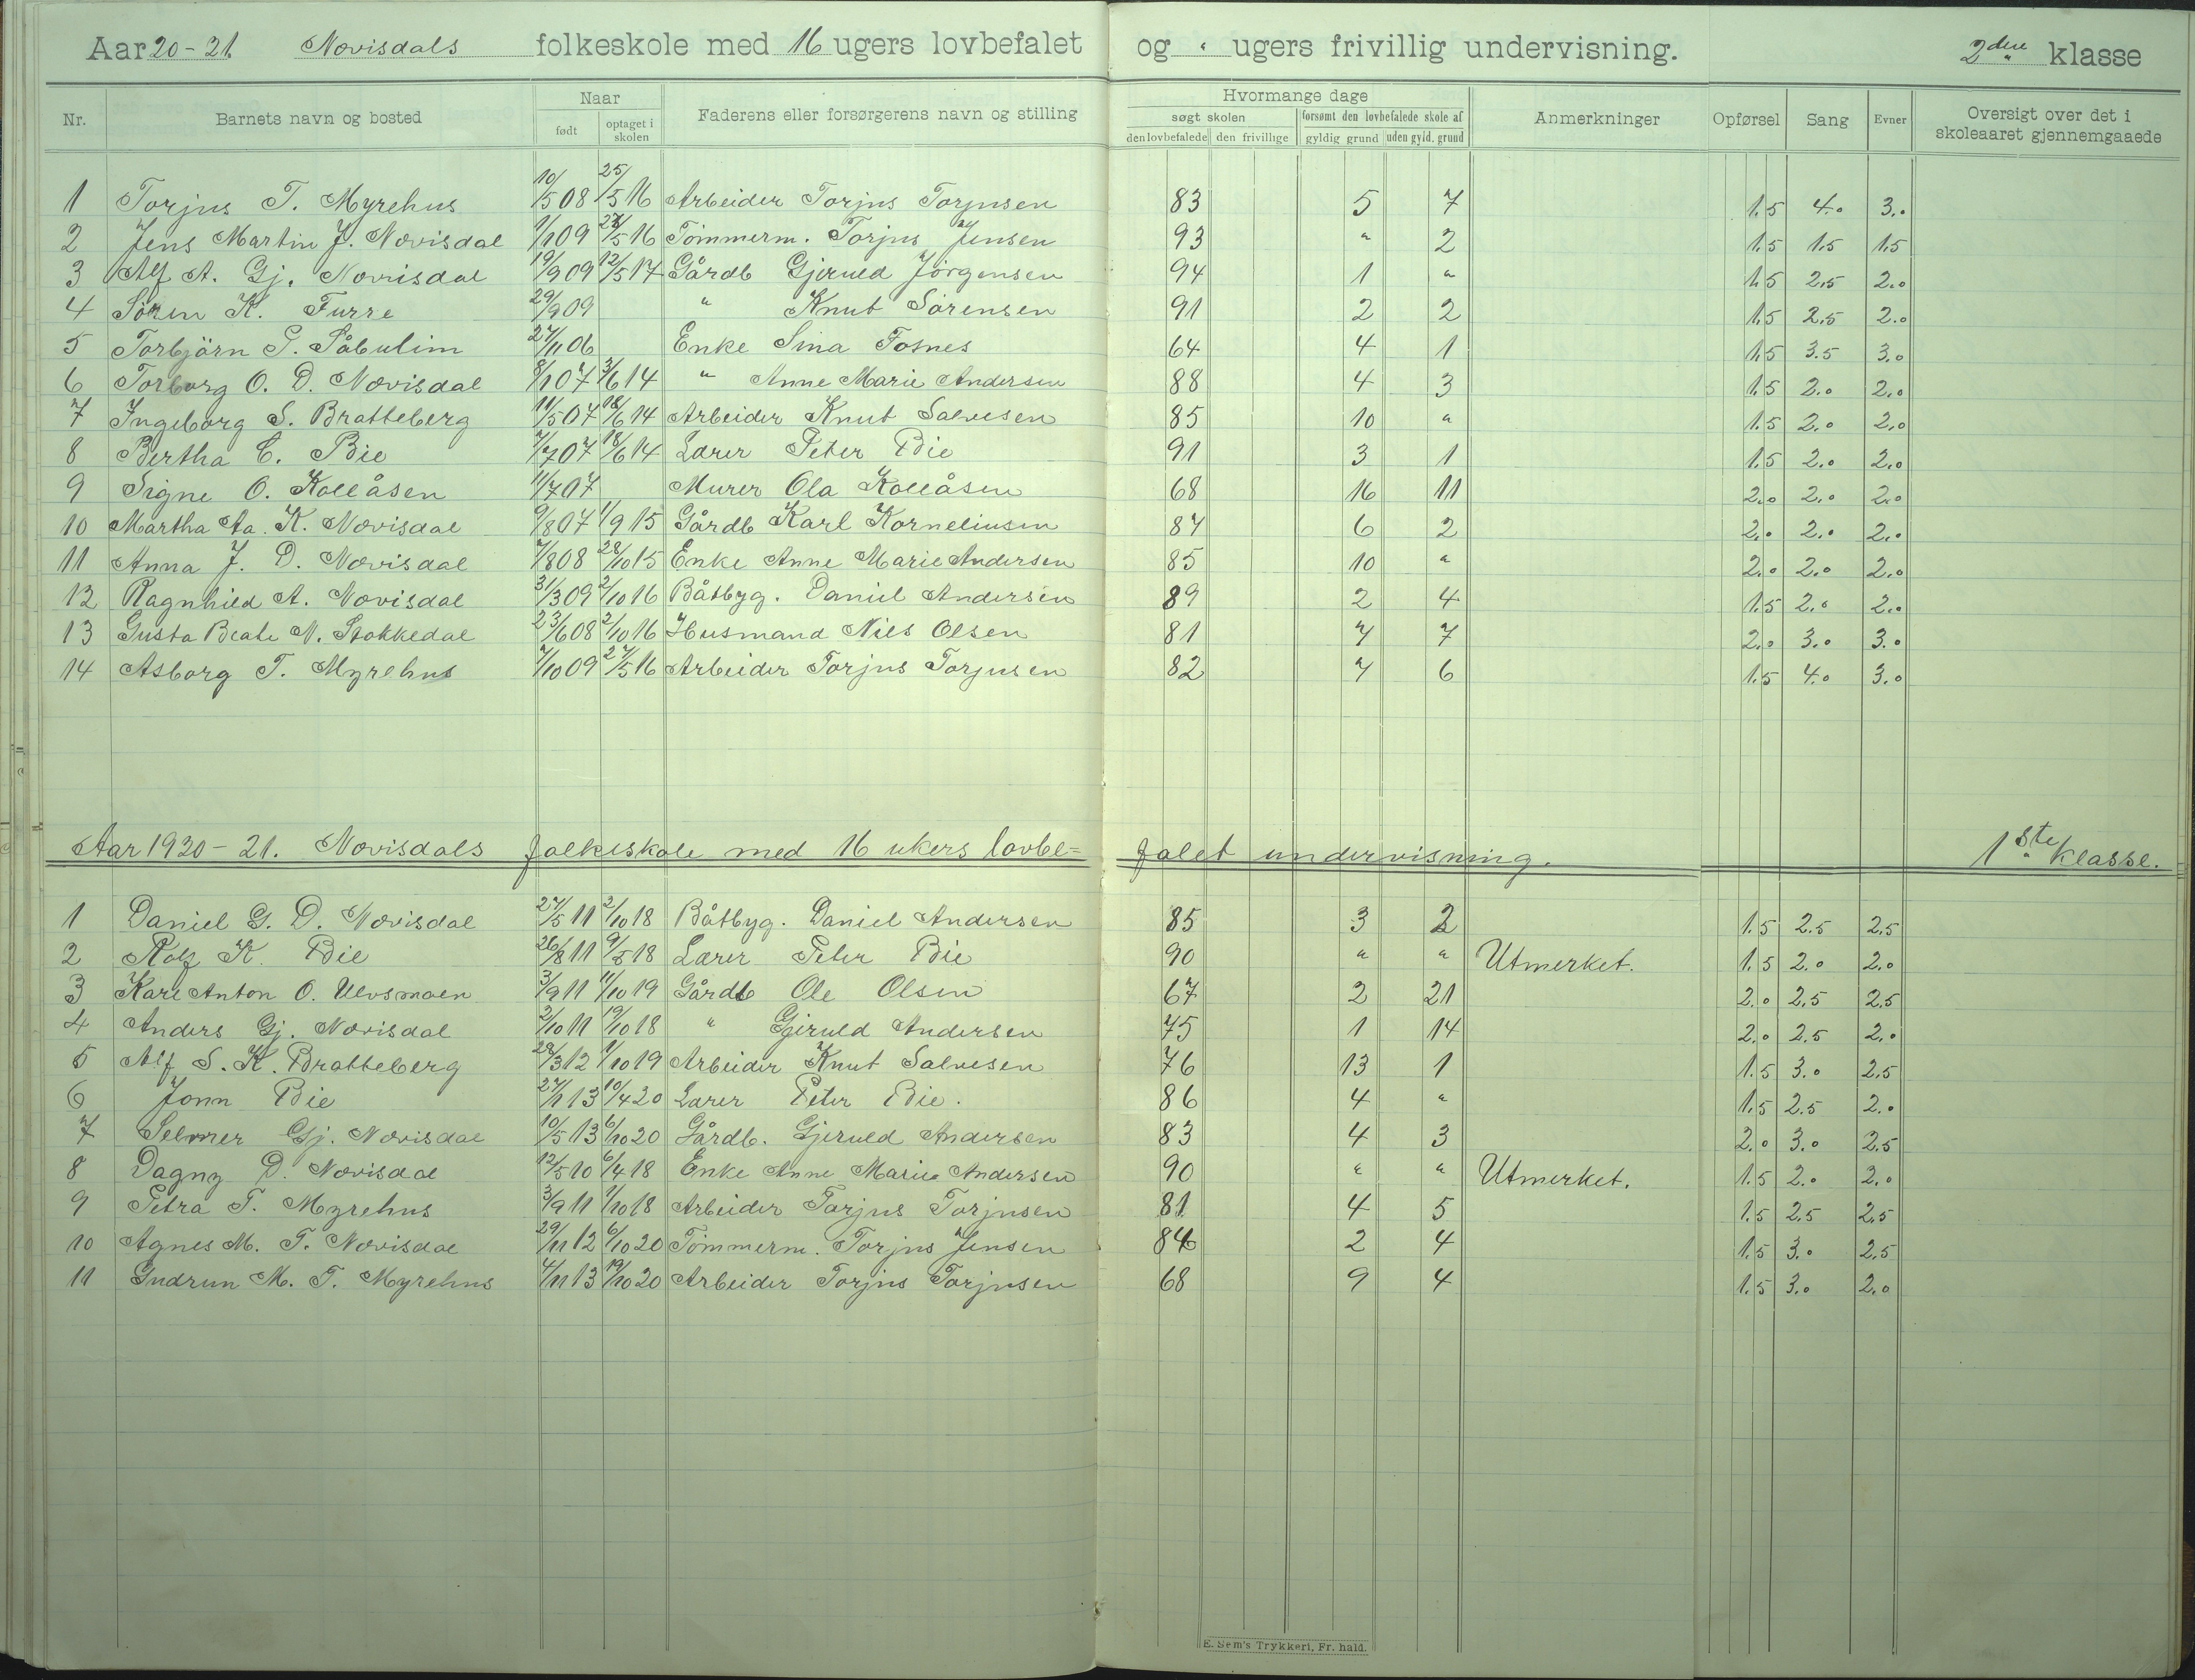 Aar 20-21 Novisdals folkeskole med 16 ugers lovbefalet og " ugers frivillig undervisning. 2den klasse
Nr. Barnets navn og bosted Naar født optaget i skolen Faderens eller forsørgerens navn og stilling Hvormange dage søgt skolen den lovbefalede den frivillige forsømt den lovbefalede skole af gyldig grund uden gyld. grund Anmerkninger Opførsel Sang Evner Oversigt over det i skoleaaret gjennemgaaede
1 Torjus T. Myrehus 10/5 08 25/5 16 Arbeider Torjus Torjusen 83 5 7 1.5 4.0 3.0
2 Jens Martin J. Novisdal 1/1 09 27/5 16 Tömmerm. Torjus Jensen 93 " 2 1.5 1.5 1.5
3 Alf A. Gj. Novisdal 19/9 09 12/5 17 Gårdb Gjeruld Jörgensen 94 1 " 1.5 2.5 2.0
4 Sören K. Furre 29/9 09 " Knut Sörensen 91 2 2 1.5 2.5 2.0
5 Torbjörn G. Såbulim 27/11 06 Enke Sina Fosnes 64 4 1 1.5 3.5 3.0
6 Torborg O. D. Novisdal 8/1 07 3/6 14 " Anne Marie Andersen 88 4 3 1.5 2.0 2.0
7 Ingeborg S. Bratteberg 11/5 07 18/6 14 Arbeider Knut Salvesen 85 10 " 1.5 2.0 2.0
8 Bertha C. Bie 7/7 07 18/6 14 Lærer Peter Bie 91 3 1 1.5 2.0 2.0
9 Signe O. Kollåsen 11/7 07 Murer Ola Kollåsen 68 16 11 2.0 2.0 2.0
10 Martha Aa. K. Novisdal 9/8 07 1/9 15 Gårdb Karl Korneliusen 87 6 2 2.0 2.0 2.0
11 Anna J. D. Novisdal 7/8 08 28/10 15 Enke Anne Marie Andersen 85 10 " 2.0 2.0 2.0
12 Ragnhild A. Novisdal 31/3 09 2/10 16 Båtbyg. Daniel Andersen 89 2 4 1.5 2.0 2.0
13 Gusta Beate N. Stokkedal 23/6 08 2/10 16 Husmand Nils Olsen 81 7 7 2.0 3.0 3.0
14 Asborg T. Myrehus 7/10 09 27/5 16 Arbeider Torjus Torjusen 82 7 6 1.5 4.0 3.0
Aar 1920-21. Novisdals folkeskole med 16 ukers lovbe=falet undervisning. 1ste klasse.
1 Daniel G. D. Novisdal 27/5 11 2/10 18 Båtbyg. Daniel Andersen 85 3 2 1.5 2.5 2.5
2 Rolf K. Bie 26/8 11 9/5 18 Lærer Peter Bie 90 " " Utmerket. 1.5 2.0 2.0
3 Karl Anton O. Ulvsmoen 3/9 11 11/10 19 Gårdb Ole Olsen 67 2 21 2.0 2.5 2.5
4 Anders Gj. Novisdal 2/10 11 19/10 18 " Gjeruld Andersen 75 1 14 2.0 2.5 2.0
5 Alf S. K. Bratteberg 28/3 12 1/10 19 Arbeider Knut Salvesen 76 13 1 1.5 3.0 2.5
6 Jonn Bie 27/1 13 10/4 20 Lærer Peter Bie. 86 4 " 1.5 2.5 2.0
7 Selmer Gj. Novisdal 10/5 13 6/10 20 Gårdb. Gjeruld Andersen 83 4 3 2.0 3.0 2.5
8 Dagny D. Novisdal 12/5 10 6/4 18 Enke Anne Marie Andersen 90 " " Utmerket. 1.5 2.0 2.0
9 Petra T. Myrehus 3/9 11 1/10 18 Arbeider Torjus Torjusen 81 4 5 1.5 2.5 2.5
10 Agnes M. T. Novisdal 29/11 12 6/10 20 Tömmerm. Torjus Jensen 84 2 4 1.5 3.0 2.5
11 Gudrun M. T. Myrehus 4/11 13 19/10 20 Arbeider Torjus Torjusen 68 9 4 1.5 3.0 2.0
E. Sem's Trykkeri, Fr. hald.